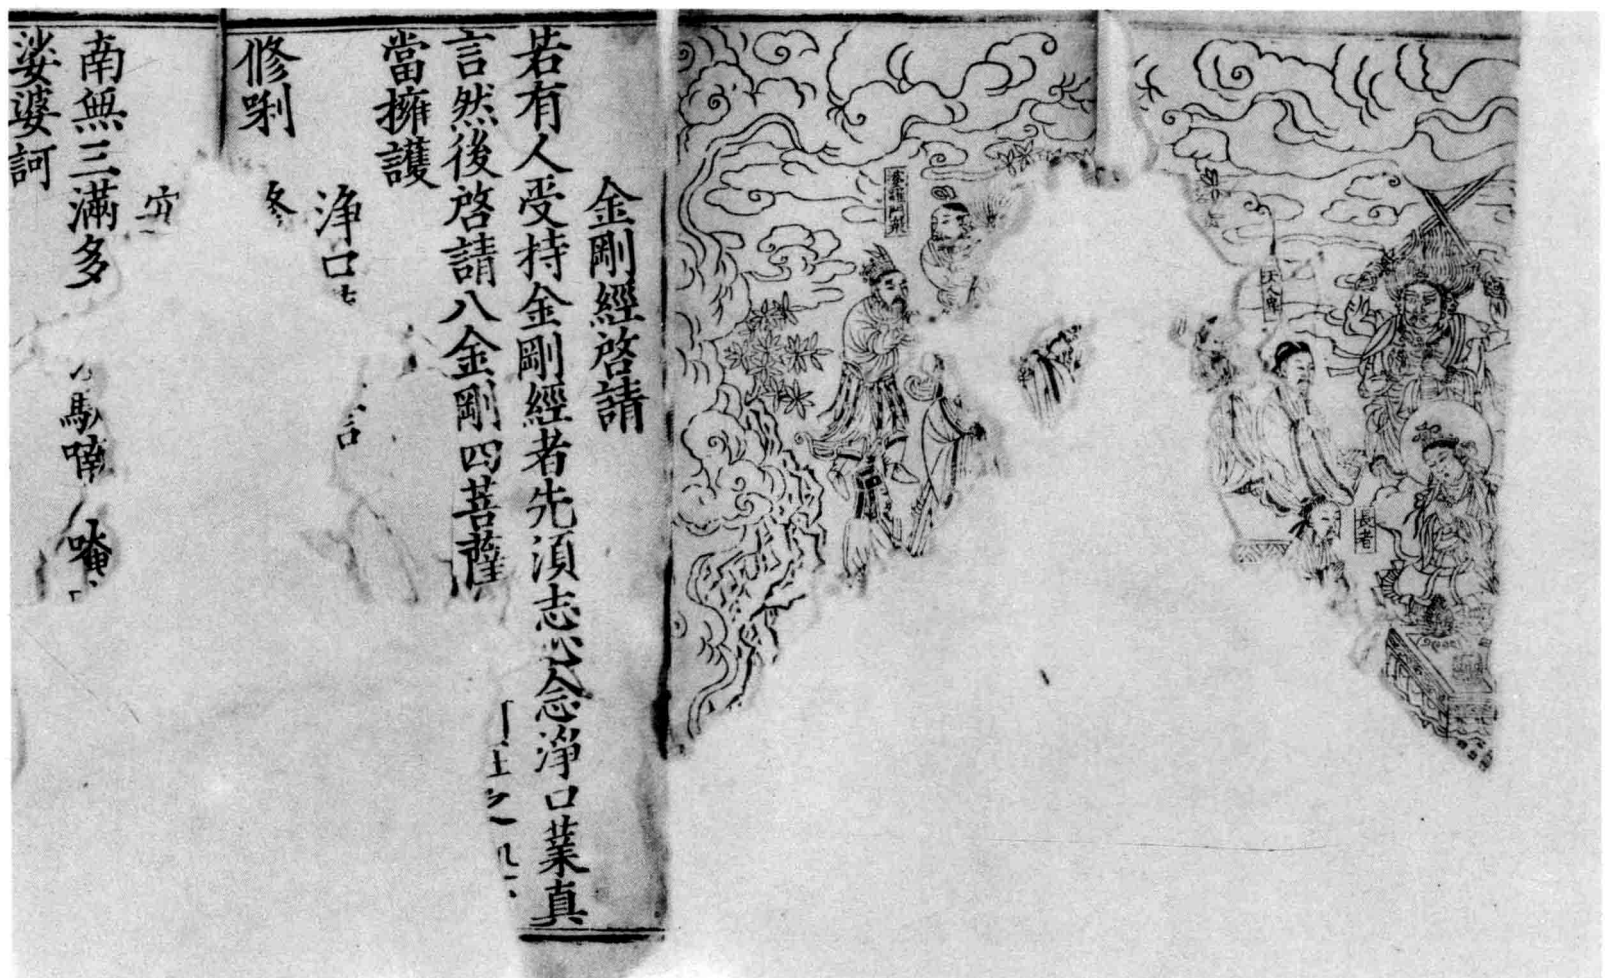 長者
天人
婆羅門眾
金剛經啓請
若有人受持金剛經者先湏志心念淨口業真
言然後啓請八金剛四菩薩 之
當擁護
淨口 言
修唎 修
南無三滿多 馱喃 唵
娑婆訶